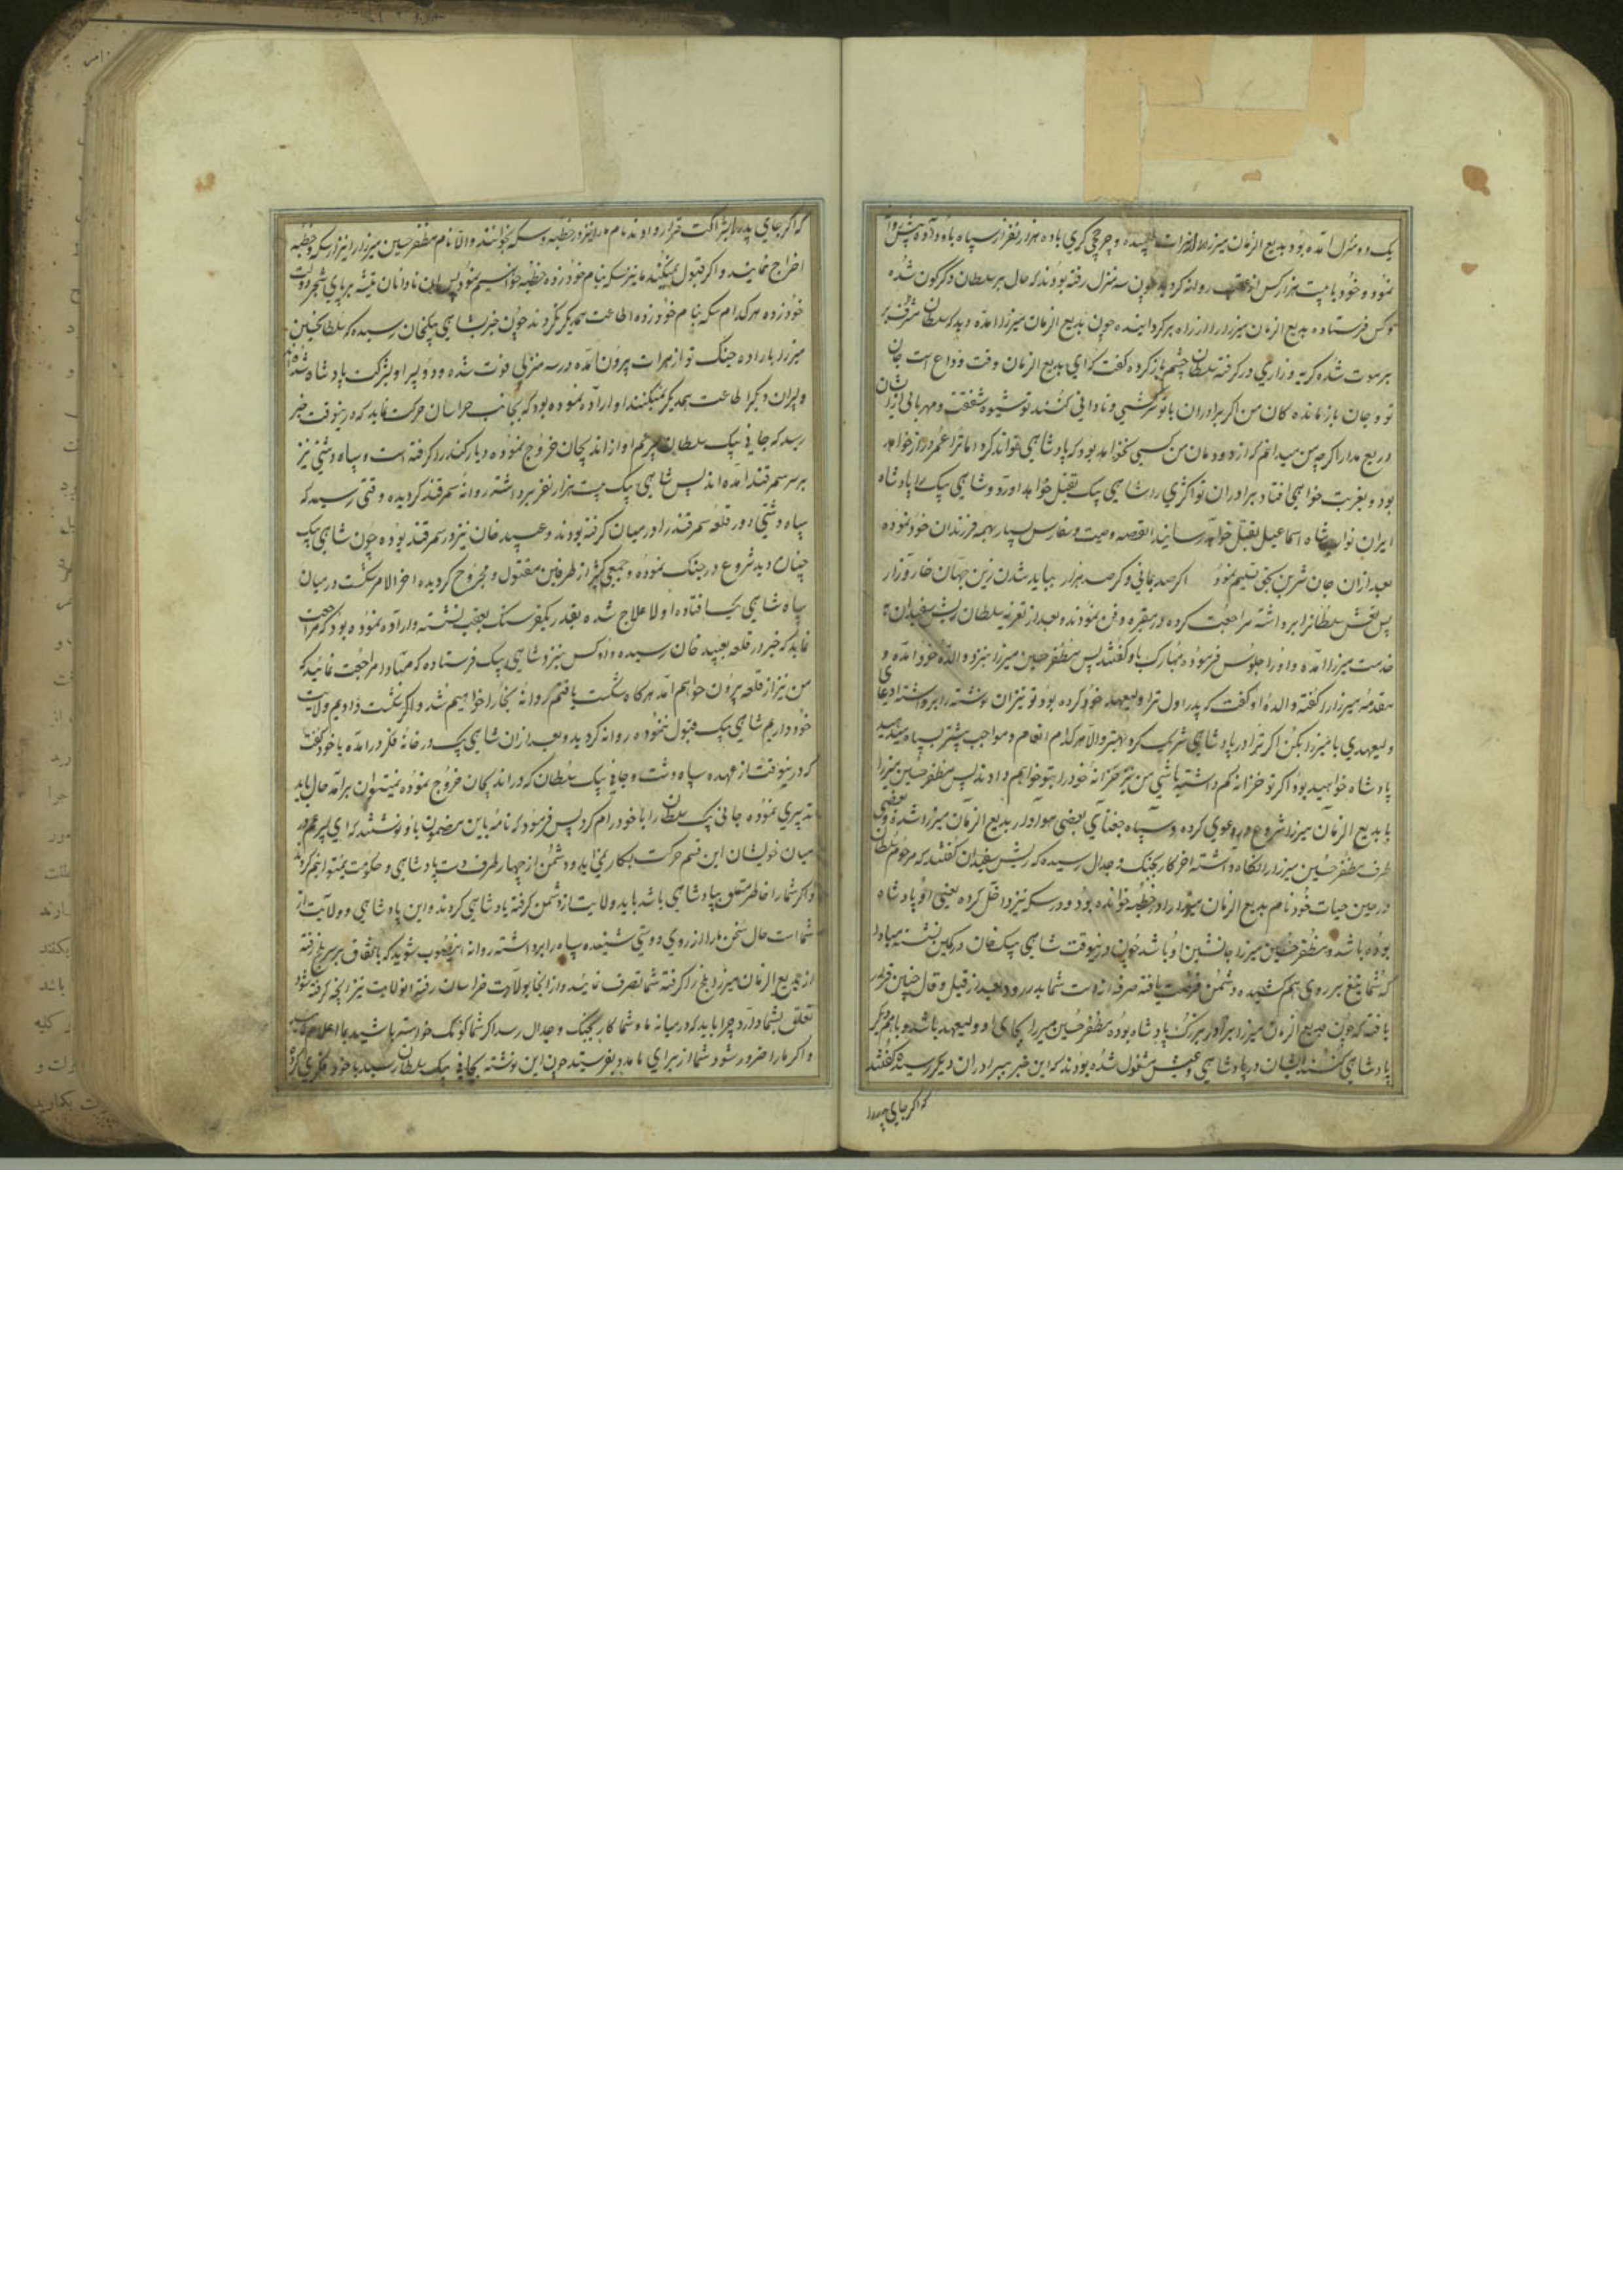 یک دو منزل آمده بود بدیع الزمان میرزا از هرات طلبیده و چرخچی کری با ده هزار نفر از سپاه باو داده پیش روانه
نموده و خود با بیست هزار کس از عقب روانه کردید چون سه منزل رفته بودند که حال بر سلطان دکرکون شده
کس فرستاده بدیع الزمان میرزا را از راه برکردانیده چون بدیع الزمان میرزا آمده دید که سلطان مشرف بر
بر موت شده کریه و زاری درکرفته سلطان چشم باز کرده کفت که ای بدیع الزمان وقت وداع است جان
تو و جان بازمانده کان من اکر برادران با تو سرکشی و نادانی کنند تو شیوه شفقت و مهربانی از ایشان
دریغ مدار اکرچه من میدانم که از دودمان من کسی نخواهد بود که پادشاهی تواند کرد اما ترا عمر دراز خواهد
بود و بغربت خواهی افتاد برادران تو اکثری را شاهی بیک بقتل خواهد آورد و شاهی بیک را پادشاه
ایران نواب شاه اسماعیل بقتل خواهد رسانید القصه وصیت و سفارش بسیار بهمه فرزندان خود نموده
بعد از آن جان شیرین بحق تسلیم نمود اکر صد بمانی و کر صد هزار بباید شدن زین جهان خار و زار
پس نعش سلطانرا برداشته مراجعت کرده در مقبره دفن نمودند و بعد از تعزیه سلطان ریش سفیدان به
خدمت میرزا آمده و او را جلوس فرموده مبارک باد کفتند پس مظفر حسین میرزا بنزد والده خود آمده و
مقدمه میرزا را کفته والده او کفت که پدر اول ترا ولیعهد خود کرده بود تو نیز آن نوشته را برداشته ادعای
ولیعهدی با میرزا بکن اکر ترا در پادشاهی شریک کرد بهتر و الا هر کدام انعام و مواجب بیشتر بسپاه میدهید
پادشاه خواهید بود اکر تو خزانه کم داشته باشی من نیز خزانه خود را بتو خواهم داد پس مظفر حسین میرزا
با بدیع الزمان میرزا شروع در دعوی کرده و سپاه جغتای بعضی هوادار بدیع الزمان میرزا شده و بعضی
طرف مظفر حسین میرزا را نکاه داشته آخر کار بجنک و جدال رسیده که ریش سفیدان کفتند که مرحوم سلطان
در حین حیات خود نام بدیع الزمان میرزا را در خطبه خوانده بود و در سکه نیز داخل کرده یعنی او پادشاه
بوده باشد و مظفر حسین میرزا جانشین او باشد چون درینوقت شاهی بیک خان در کمین نشسته مبادا
که شما تیغ بر روی هم کشیده دشمن فرصت یافته صرفه از دست شما بدر رود بعد از قیل و قال چنین قرار
یافته که چون بدیع الزمان میرزا برادر بزرک پادشاه بوده مظفر حسین میرزا بجای او ولیعهد باشد و با همدیکر
پادشاهی کنند ایشان در پادشاهی و عیش مشغول شده بودند که این خبر ببرادران دیکر رسید کفتند
که اکر جای پدر را
که اکر جای پدر را بشراکت قرار دادند نام ما را نیز در خطبه و سکه بخوانند و الا نام مظفر حسین میرزا را نیز از سکه و خطبه
اخراج نمایند و اکر قبول نمیکنند ما نیز سکه بنام خود زده خطبه خوانیم نمود پس آن نادانان تیشه بر پای شجر دولت
خود زده هر کدام سکه بنام خود زده اطاعت همدیکر نکردند چون خبر بشاهی بیکخان رسیده که سلطانحسین
میرزا باراده جنک تو از هرات بیرون آمده در سه منزلی فوت شده و دو پسر او بشرکت پادشاه شدند
و پسران دیکر اطاعت همدیکر نمیکنند او اراده نموده بود که بجانب خراسان حرکت نماید که درینوقت خبر
رسید که جانی بیک سلطان پسر عم او از اندیجان خروج نموده دیار کندرا کرفته است و سپاه دشتی نیز
بر سر سمرقند آمده اند پس شاهی بیک بیست هزار نفر برداشته روانه سمرقند کردیده وقتی رسید که
سپاه دشتی دور قلعه سمرقند را در میان کرفته بودند و عبید خان نیز در سمرقند بوده چون شاهی بیک
چنان دید شروع در جنک نموده و جمعی کثیر از طرفین مقتول و مجروح کردیده آخر الامر شکست در میان
سپاه شاهی بیک افتاده او لاعلاج شده بقدر یکفرسنک بعقب نشسته و اراده نموده بود که مراجعت
نماید که خبر در قلعه بعبید خان رسیده دو کس بنزد شاهی بیک فرستاده که مبادا مراجعت نمائید که
من نیز از قلعه بیرون خواهم آمد هر کاه شکست یافتیم روانه بخارا خواهیم شد و اکر شکست دادیم ولایت
خود داریم شاهی بیک قبول نموده روانه کردید و بعد از آن شاهی بیک در خانه فکر درآمده با خود کفت
که درینوقت از عهده سپاه دشت و جانی بیک سلطان که در اندیجان خروج نموده نمیتوان برآمد حال باید
تدبیری نموده جانی بیک سلطان را با خود رام کرد پس فرمود که نامه باین مضمون باو نوشتند که ای پسر عم در
میان خویشان این قسم حرکت بکار نمی آید و دشمن از چهار طرف دست پادشاهی و حکومت نمیتوانیم کرد
و اکر شما را خاطر متعلق بپادشاهی باشد باید ولایت از دشمن کرفته پادشاهی کردند و این پادشاهی و ولایت از
شما است حال سخن ما را از روی دوستی شنیده سپاه را برداشته روانه اینصوب شوید که باتفاق بر سر بلخ رفته
از بدیع الزمان میرزا بلخ را کرفته شما تصرف نمائید و از آنجا بولایت خراسان رفته از ولایت نیز آنچه کرفته شود
تعلق بشما دارد چرا باید که در میانه ما و شما کار بجنک و جدال رسد اکر شما کومک خواسته باشید بما اعلام نمائید
و اکر ما را ضرور شود شما از برای ما مدد بفرستید چون این نوشته بجانی بیک سلطان رسید با خود فکری کرد